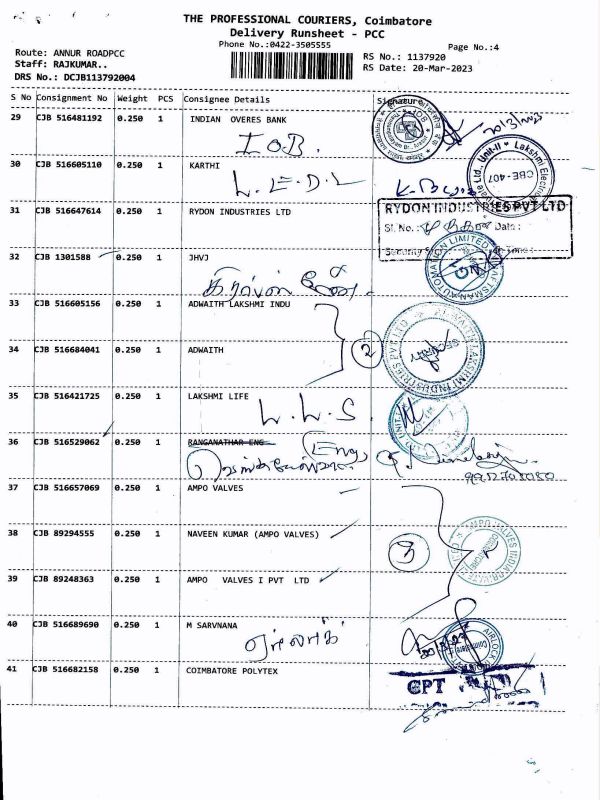 THE PROFESSIONAL COURIERS, Coimbatore
Delivery Runsheet - PCC
Phone No.:0422-3505555
Page No.:4
Route: ANNUR ROADPCC
Staff: RAJKUMAR..
DRS No.: DCJB113792004
RS No.: 1137920
RS Date: 20-Mar-2023
S No Consignment No Weight PCS Consignee Details Signature
29 CJB 516481192 0.250 1 INDIAN OVERES BANK
I.O.B.
20/3/2023
30 CJB 516605110 0.250 1 KARTHI
L.E.D.L
Unit-II • Lakshmi Electrical
CBE-407
31 CJB 516647614 0.250 1 RYDON INDUSTRIES LTD
RYDON INDUSTRIES PVT LTD
Sl. No.: Date :
Security Time :
32 CJB 1301588 0.250 1 JHVJ
AUTOMATION LIMITED
33 CJB 516605156 0.250 1 ADWAITH LAKSHMI INDU
34 CJB 516684041 0.250 1 ADWAITH
2
ADWAITH LAKSHMI INDUSTRIES PVT LTD
SECURITY
35 CJB 516421725 0.250 1 LAKSHMI LIFE
L.L.S.
36 CJB 516529062 0.250 1 RANGANATHAR ENG
Engg
37 CJB 516657069 0.250 1 AMPO VALVES
38 CJB 89294555 0.250 1 NAVEEN KUMAR (AMPO VALVES)
3
AMPO VALVES INDIA
39 CJB 89248363 0.250 1 AMPO VALVES I PVT LTD
40 CJB 516689690 0.250 1 M SARVNANA
AIRLOCK
41 CJB 516682158 0.250 1 COIMBATORE POLYTEX
CPT